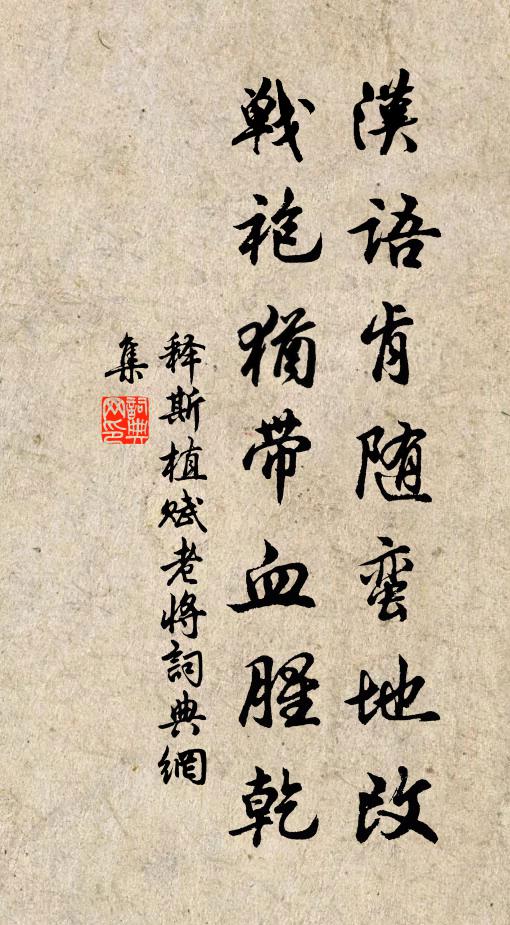 漢語肯随蛮地改
戦袍猶带血腥乾
释斯植赋老将詞典網
集
詞典
网印